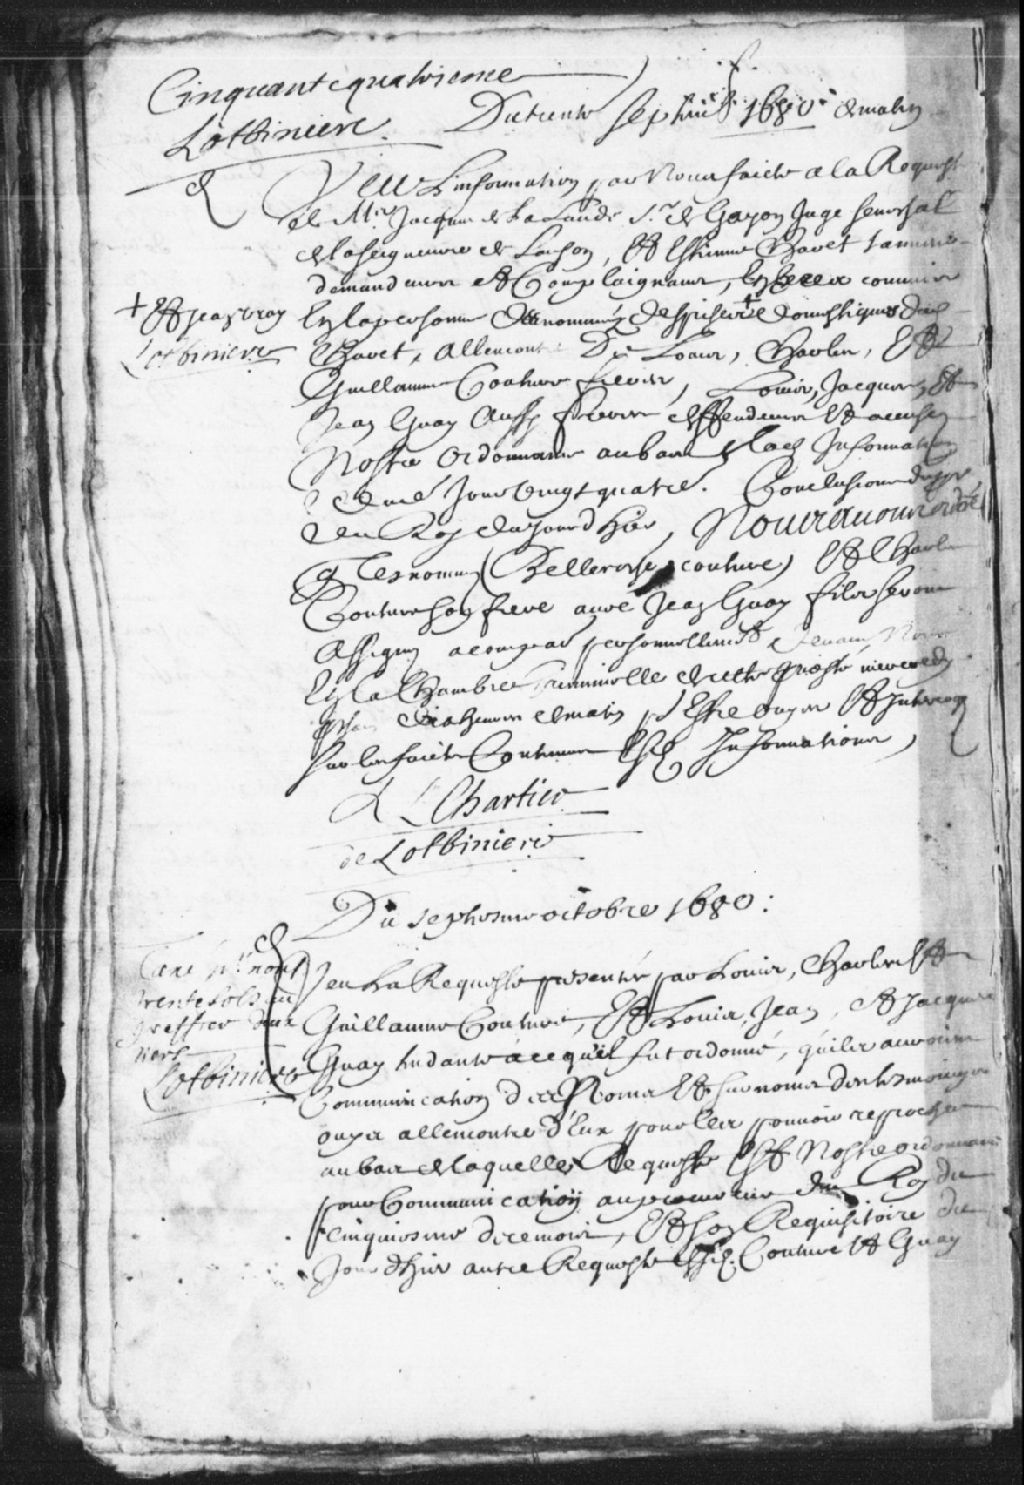 Cinquante quatriesme
Lotbiniere. Du trente septbre 1680 de matin
Veu L'information par Nous faicte a la Requeste
de Mre Jacques de La Lande Sr de Gayon Juge senechal
de la seigneurie de Lauson, Et Estienne Charet tanneur
demandeurs Et Complaignans,
+ Et Jean Guay En la personne des nommez + domestiques dud
Lotbiniere Charet, Allencontre De Louis, Charles, Et
Guillaume Couture freres, Louis, Jacques, Et
Jean Guay Aussy freres deffendeurs Et accusez
Nostre ordonnance au bas de lad Information
dud Jour vingt quatre. Conclusions du pr
du Roy du jourdhier, Nous avons ordé
q Les nommez (Bellerose couture) Et Charles
Couture son frere avec Jean Guay fils seront
Assignez a comparoir personnellement devant Nous
En La Chambre Criminelle mercredy
dix heures de matin pr Estre ouys Et Interrog
sur les faicts Contenus Esd Informations,
L Chartier
de Lotbiniere
Du septiesme octobre 1680:
Taxé pr nous trente sols au greffier
Lotbiniere
Veu La Requeste presentée par Louis, Charles Et
Guillaume Couture, Et Louis, Jean, Et Jacques
Guay tendante a ce qu'il fut ordonné, qu'ils auroient
Communication des Noms Et surnoms des tesmoings
ouys allencontre d'Eux pour les pouvoir reprocher
au bas de laquelle Requeste Est Nostre ordonnance
pour Communication au procureur du Roy du
cinquiesme de ce mois, Et son Requisitoire du
Jour d'hier autre Requeste desd. Couture Et Guay